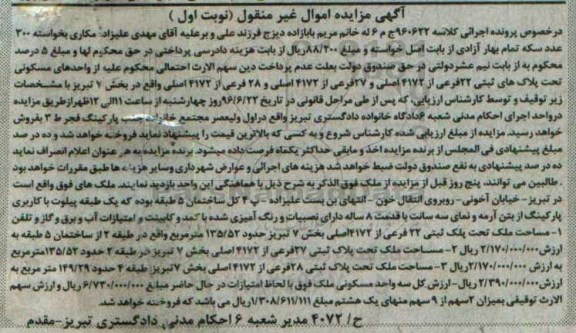 آگهی مزایده اموال غیر منقول (نوبت اول )
درخصوص پرونده اجرائی کلاسه ۹۶۰۶۲۲ج م ۶ له خانم مریم بابازاده دیزج فرزند علی و برعلیه آقای مهدی علیزاد مکاری بخواسته ۳۰۰
عدد سکه تمام بهار آزادی از بابت اصل خواسته و مبلغ ۸۸/۲۰۰ ریال از بابت هزینه دادرسی پرداختی در حق محکوم لها و مبلغ ۵ درصد
محکوم به از بابت نیم عشردولتی در حق صندوق دولت بعلت عدم پرداخت دین سهم الارث احتمالی محکوم علیه از واحدهای مسکونی
تحت پلاک های ثبتی ۲۲فرعی از ۴۱۷۲ اصلی و ۲۷فرعی از ۴۱۷۲ اصلی و ۲۸ فرعی از ۴۱۷۲ اصلی واقع در بخش ۷ تبریز با مشخصات
زیر توقیف و توسط کارشناس ارزیابی، که پس از طی مراحل قانونی در تاریخ ۹۶/۶/۲۲ روز چهارشنبه از ساعت ۱۱الی ۱۲ظهرازطریق مزایده
درواحد اجرای احکام مدنی شعبه ۶دادگاه خانواده دادگستری تبریز واقع دراول ولیعصر مجتمع پارکینگ فجر ط ۳ بفروش
خواهد رسید. مزایده از مبلغ ارزیابی شده کارشناس شروع و به کسی که بالاترین قیمت را پیشنهاد نماید فروخته خواهد شد و ده در صد
مبلغ پیشنهادی فی المجلس از برنده مزایده اخذ و مابقی حداکثر یکماه فرصت داده میشود. برنده مزایده به هر عنوان اعلام انصراف نماید
ده در صد پیشنهادی به نفع صندوق دولت ضبط خواهد شد هزینه های اجرائی و عوارض شهرداری وسایر هزینه ها طبق مقررات خواهد بود
. طالبین می توانند، پنج روز قبل از مزایده از ملک فوق الذکر به شرح ذیل با هماهنگی این واحد بازدید نمایند. ملک های فوق واقع است
در تبریز - خیابان آخونی - روبروی انتقال خون - انتهای بن بست علیزاده - پ ۴ کل ساختمان ۵ طبقه بوده که یک طبقه پیلوت با کاربری
پارکینگ از بتن آرمه و نمای سه سانت با قدمت ۸ ساله دارای نصبیات و رنگ آمیزی شده با کمد و کابینت و امتیازات آب و برق و گاز و تلفن
۱- مساحت ملک تحت پلاک ثبتی ۲۲ فرعی از ۴۱۷۲اصلی بخش ۷ تبریز حدود ۱۳۵/۵۲ مترمربع واقع در طبقه ۲ از ساختمان ۵ طبقه به
ارزش ۲/۱۷۰/۰۰۰/۰۰۰ریال ۲- مساحت ملک تحت پلاک ثبتی ۲۷فرعی از ۴۱۷۲ اصلی بخش ۷ تبریز در طبقه ۳ حدود ۱۳۵/۵۲مترمربع
به ارزش ۲/۱۷۰/۰۰۰/۰۰۰ریال ۳- مساحت ملک تحت پلاک ثبتی ۲۸فرعی از ۴۱۷۲اصلی بخش ۷تبریز طبقه ۴ حدود ۱۴۹/۲۹ متر مربع به
ارزش ۲/۳۹۰/۰۰۰/۰۰۰ریال - ارزش کل سه واحد مسکونی ملک فوق با لحاظ امتیازات در حال حاضر مبلغ ۶/۷۳۰/۰۰۰/۰۰۰ ریال و ارزش سهم
الارث توقیفی بمیزان ۲سهم از ۹ سهم منهای یک هشتم مبلغ ۱/۳۰۸/۶۱۱/۱۱۱ریال می باشد که فروخته خواهد شد.
ح/ ۴۰۷۲ مدیر شعبه ۶ احکام مدنی دادگستری تبریز-مقدم